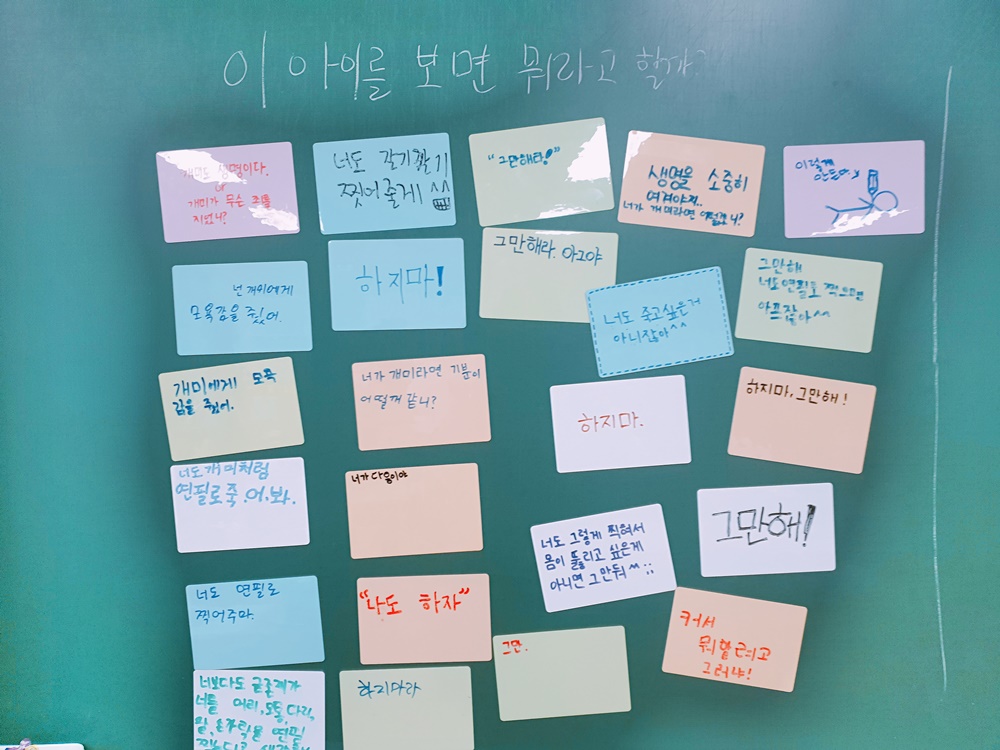 이 아이를 보면 뭐라고 할까?
개미도 생명이다.
or
개미가 무슨 죄를
지었니?
너도 갈기갈기
찢어줄게 ^^
"그만해라!"
생명을 소중히
여겨야지..
너가 개미라면 어떻겠니?
이렇게
넌 개미에게
모욕감을 줬어.
하지마!
그만해라. 아고야
너도 죽고싶은거
아니잖아^^
그만해
너도 연필로 찍으면
아프잖아^^
개미에게 모욕
감을 줬어.
너가 개미라면 기분이
어떨꺼 같니?
하지마.
하지마, 그만해!
너도 개미처럼
연필로 죽.어.봐.
너가 다음이야
너도 그렇게 찍혀서
몸이 뚫리고 싶은게
아니면 그만둬 ^^;;
그만해!
너도 연필로
찍어주마.
"나도 하자"
그만.
커서
뭐 할려고
그러냐!
너보다도
너를 머리, 몸통, 다리,
팔, 손가락을 연필
하지마라